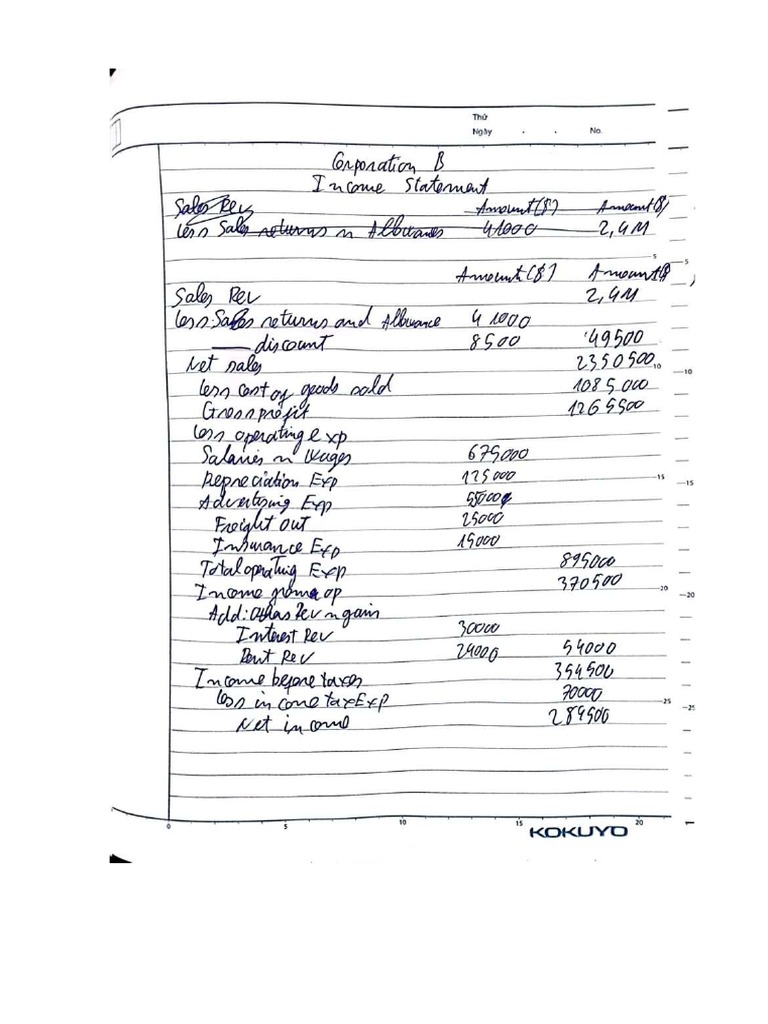 Thứ
Ngày . . No.
Corporation B
Income Statement
Sales Rev Amount($) Amount($)
less Sales returns n Allowances 41000 2,4M
Amount($) Amount($)
Sales Rev 2,4M
less: Sales returns and Allowance 41000
discount 8500 49500
Net sales 2350500
less cost of goods sold 1085000
Gross profit 1265500
less operating exp
Salaries n Wages 675000
Depreciation Exp 125000
Advertising Exp 55000
Freight out 25000
Insurance Exp 15000
Total operating Exp 895000
Income from op 370500
Add: Other Rev n gain
Interest Rev 30000
Rent Rev 24000 54000
Income before taxes 354500
less income tax Exp 70000
Net income 284500
0 5 10 15 20
KOKUYO